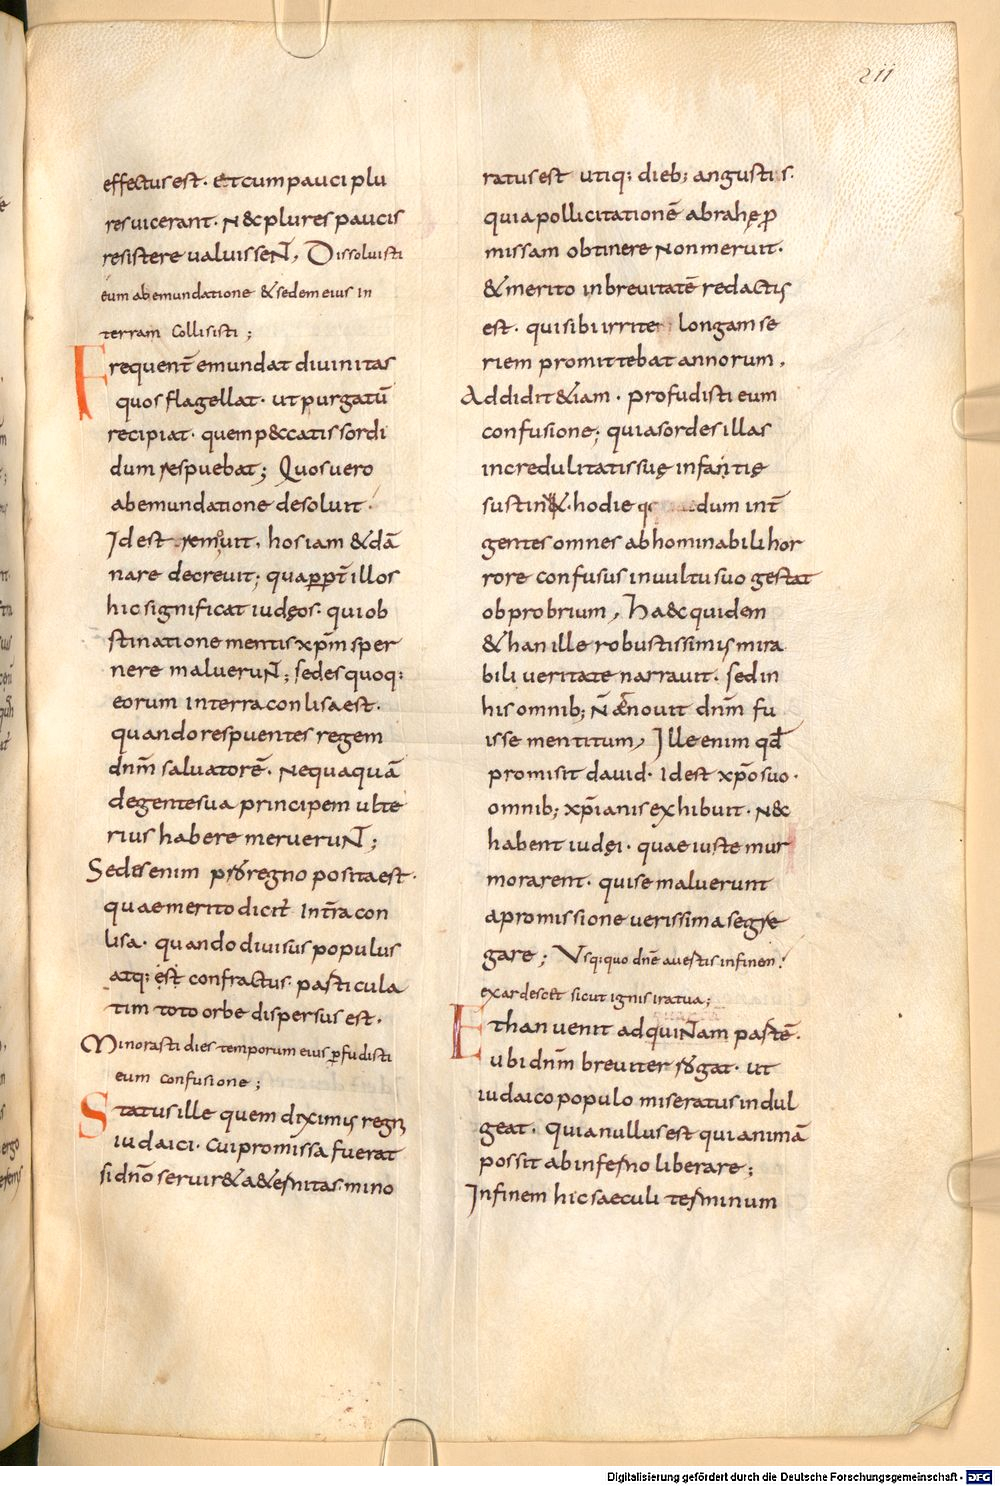 211
effectus est. Et cum pauci plu
res uicerant. N& plures paucis
resistere ualuissent, Dissoluisti
eum ab emundatione & sedem eius in
terram collisisti;
Frequent̄ emundat diuinitas
quos flagellat. ut purgatū
recipiat. quem p&ccatis sordi
dum respuebat; Quos uero
ab emundatione desoluit.
Id est remouit. hos iam & dā
nare decreuit; qua propt̄ illos
hic significat iudęos. qui ob
stinatione mentis xp̄m sper
nere maluerunt; sedes quoq;
eorum in terra conlisa est.
quando respuentes regem
dn̄m saluatorē. Nequaquā
de gente sua principem ulte
rius habere meruerunt;
Sedes enim pro regno posita est.
quae merito dicit̄ in t̄ra con
lisa. quando diuisus populus
atq; est confractus. particula
tim toto orbe dispersus est.
Minorasti dies temporum eius ꝑfudisti
eum confusione;
Status ille quem diximus regni
iudaici. cui promissa fuerat
si dn̄o seruir& a&ernitas. mino
ratus est utiq; dieb; angustis.
quia pollicitationē abrahę ꝓ
missam obtinere non meruit.
& merito in breuitatē redactus
est. qui sibi irrite longam se
riem promittebat annorum.
Addidit &iam. profudisti eum
confusione; quia sordes illas
incredulitatis suę infantię
sustin&. hodie dum int̄
gentes omnes abhominabili hor
rore confusus in uultu suo gestat
obprobrium, Haec quidem
&han ille robustissimus mira
bili ueritate narrauit. sed in
his omnib; n̄ eum nouit dn̄m fu
isse mentitum, Ille enim qđ
promisit dauid. Id est xp̄o suo.
omnib; xp̄ianis exhibuit. N&
habent iudęi. quae iuste mur
morarent. qui se maluerunt
a promissione uerissima segre
gare; Usq; quo dn̄e auertis in finem!
exardesc& sicut ignis ira tua;
Ethan uenit ad quintam partē.
ubi dn̄m breuiter rogat. ut
iudaico populo miseratus indul
geat. quia nullus est qui animā
possit ab inferno liberare;
In finem hic saeculi terminum
Digitalisierung gefördert durch die Deutsche Forschungsgemeinschaft - DFG